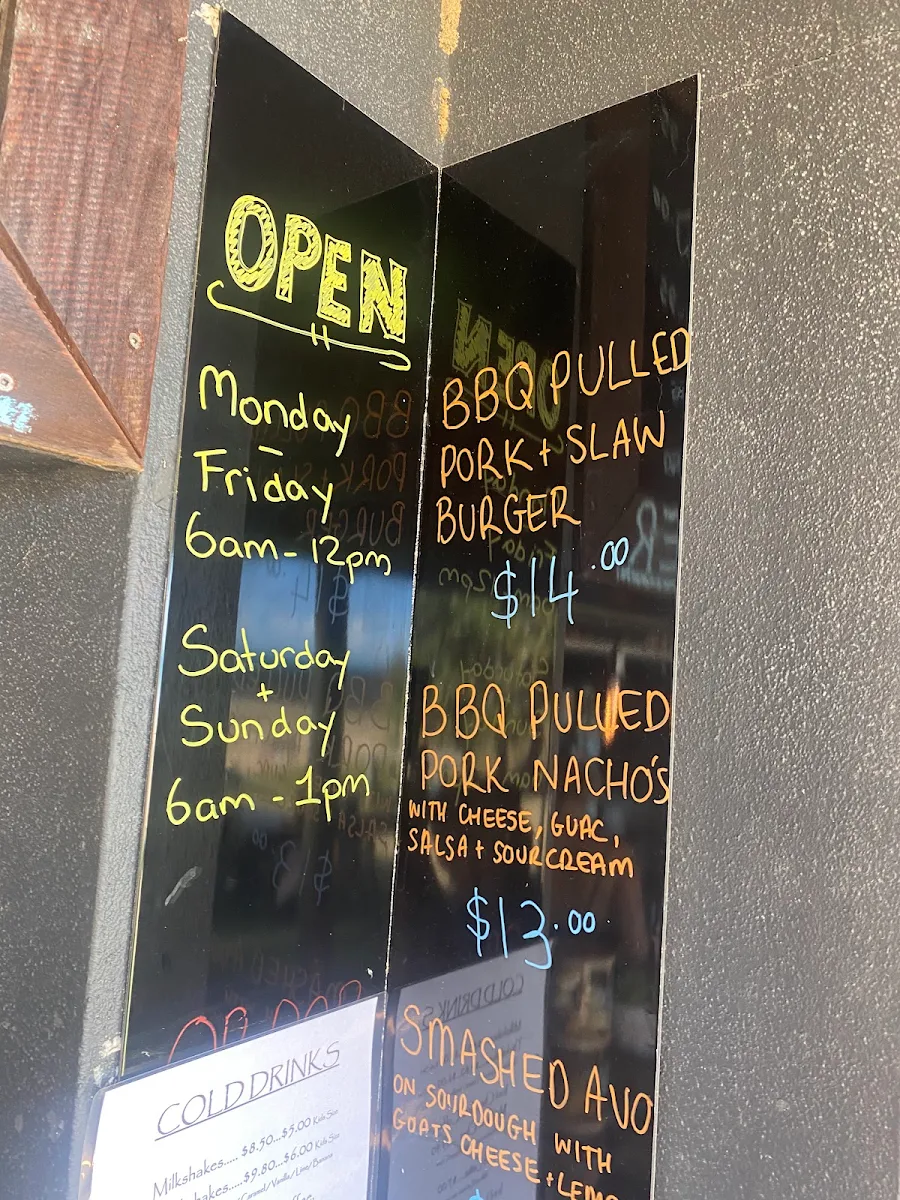 OPEN
Monday
-
Friday
6am - 12pm
Saturday
+
Sunday
6am - 1pm
BBQ PULLED
PORK + SLAW
BURGER
$14.00
BBQ PULLED
PORK NACHO'S
WITH CHEESE, GUAC,
SALSA + SOURCREAM
$13.00
SMASHED AVO
ON SOURDOUGH WITH
GOATS CHEESE +
COLD DRINKS
Milkshakes..... $8.50...$5.00 Kids Size
$9.80...$6.00 Kids Size
Caramel/Vanilla/Lime/Banana